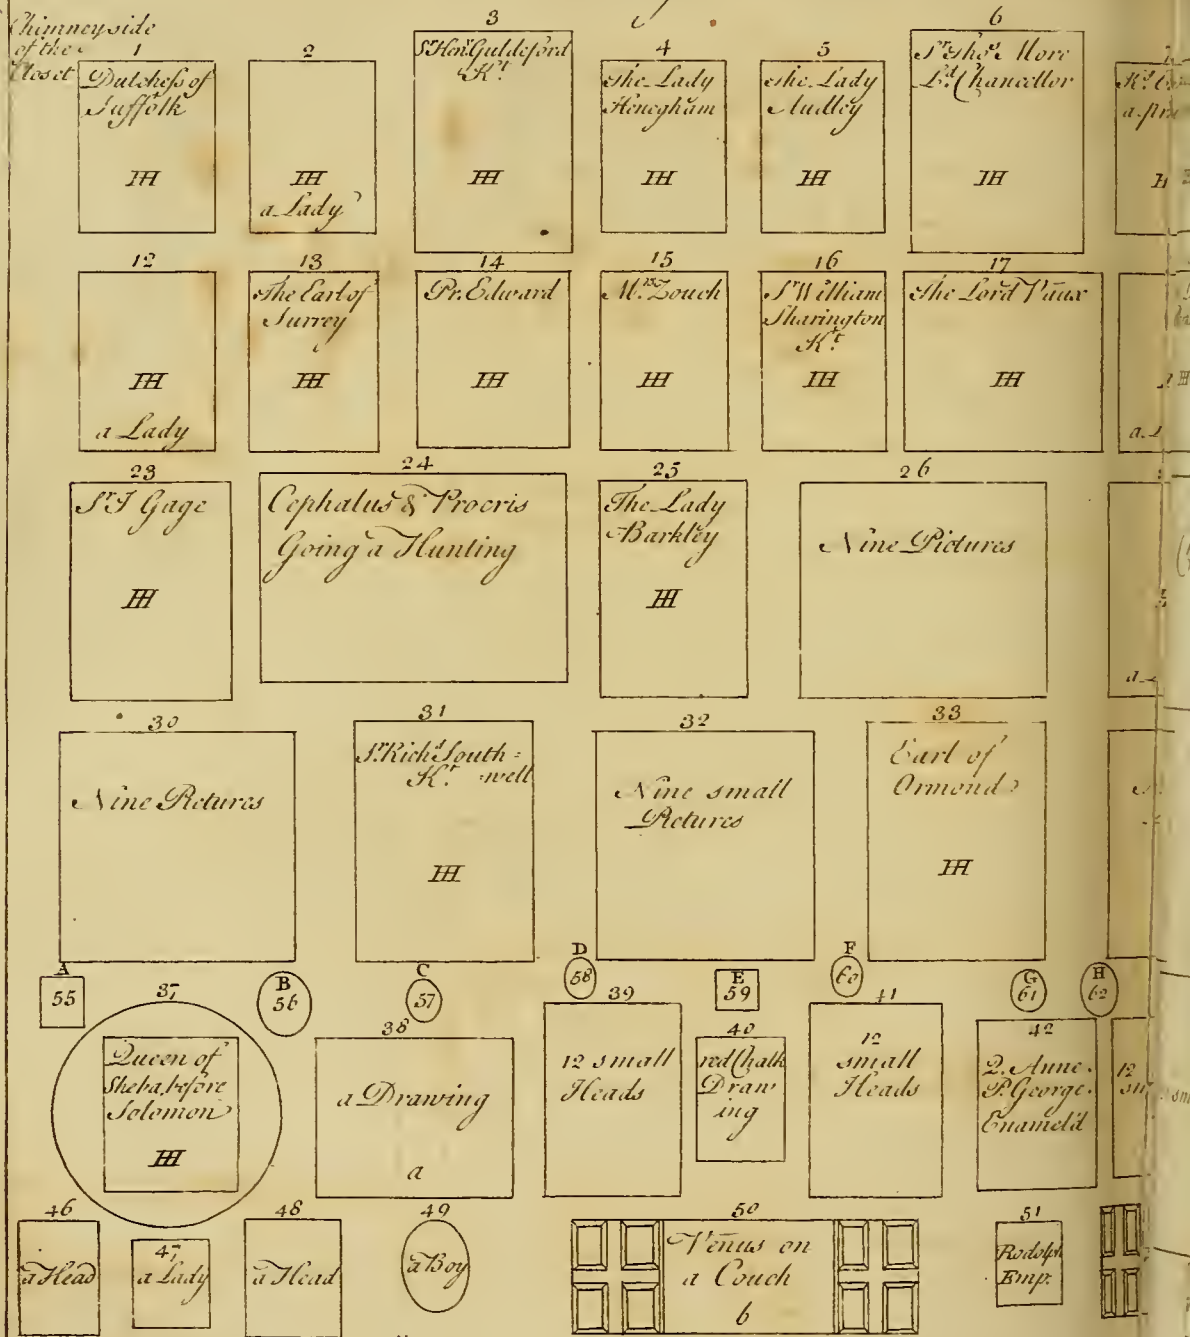 Chimney side
of the
Closet
1
Dutchess of
Suffolk
HH
2
HH
a Lady
3
Sr. Hen: Guldeford
Kt.
HH
4
The Lady
Henegham
HH
5
The Lady
Audley
HH
6
Sr. Thos. More
Ld. Chancellor
HH
12
HH
a Lady
13
The Earl of
Surrey
HH
14
Pr. Edward
HH
15
Mrs. Zouch
HH
16
Sr. William
Sharington
Kt.
HH
17
The Lord Vaux
HH
23
Sr. J Gage
HH
24
Cephalus & Procris
Going a Hunting
25
The Lady
Barkley
HH
26
Nine Pictures
30
Nine Pictures
31
Sr. Richd. South=
Kt. =well
HH
32
Nine small
Pictures
33
Earl of
Ormond
HH
A
55
B
56
C
57
D
58
E
59
F
60
G
61
H
62
37
Queen of
Sheba, before
Solomon
HH
38
a Drawing
a
39
12 small
Heads
40
red Chalk
Draw
ing
41
12
small
Heads
42
Q. Anne.
P. George.
Enameld
12
46
a Head
47
a Lady
48
a Head
49
a Boy
50
Venus on
a Couch
b
51
Rodolph
Emp.